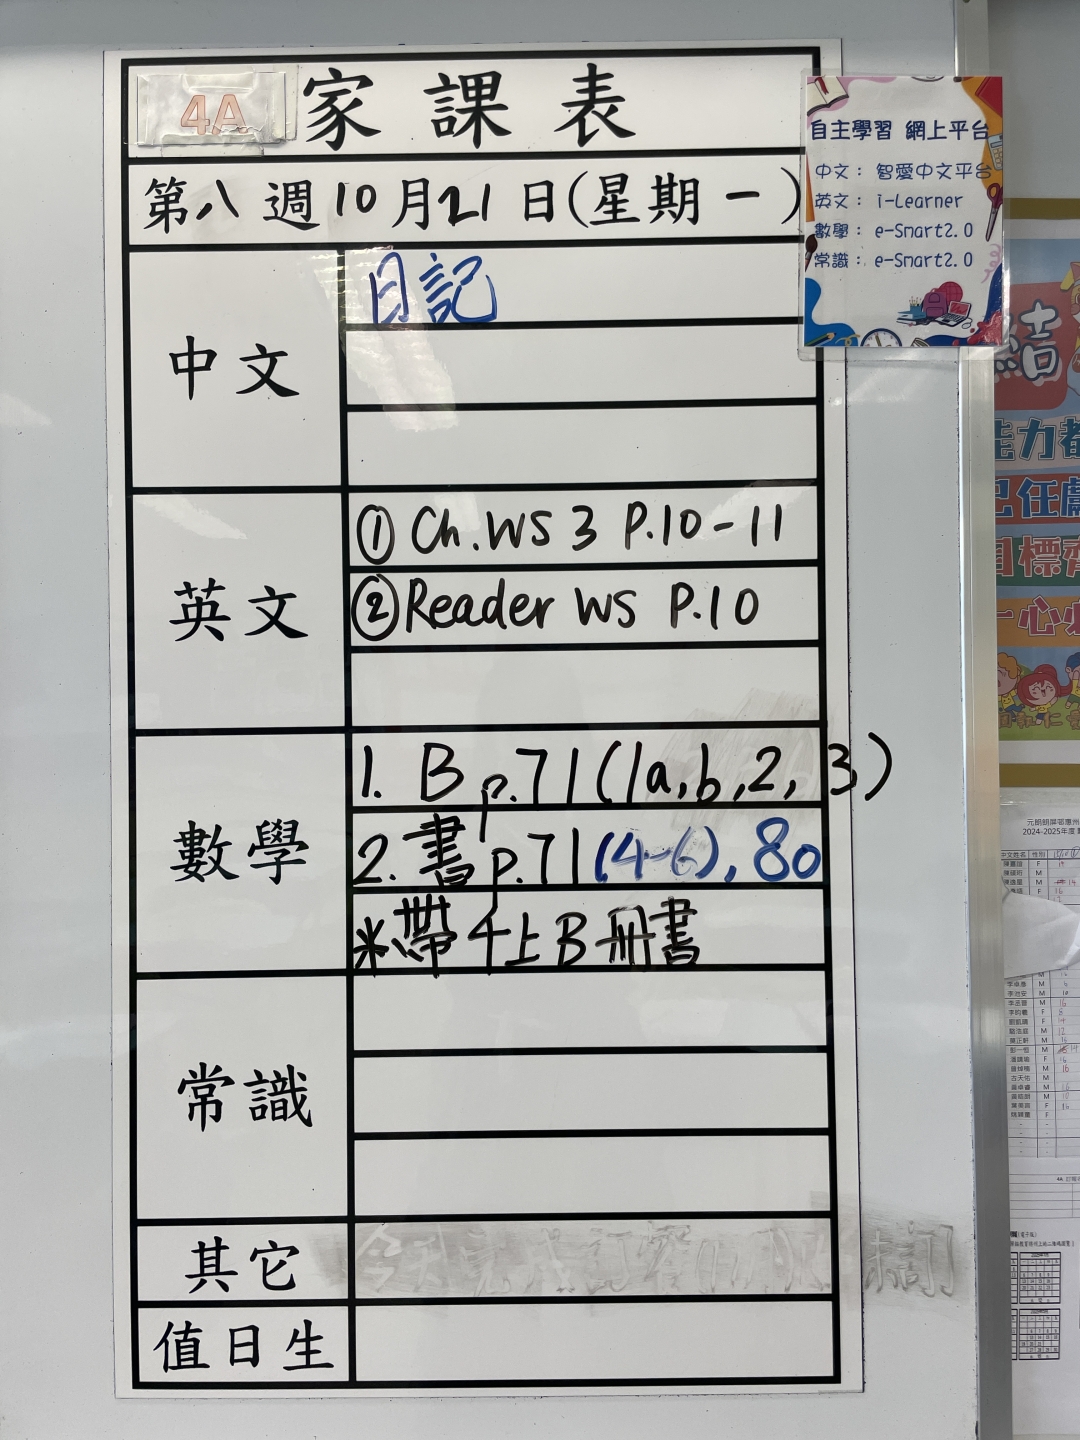 4A 家課表
第八週10月21日(星期一)
中文
日記
英文
①Ch.WS 3 P.10-11
②Reader WS P.10
數學
1. B p.71(1a,b,2,3)
2.書p.71(4-6),80
※帶4上B冊書
常識
其它
值日生
自主學習 網上平台
中文：智愛中文平台
英文：i-Learner
數學：e-Smart2.0
常識：e-Smart2.0
結
能力都
己任獻
目標齊
一心必
2024-2025年度